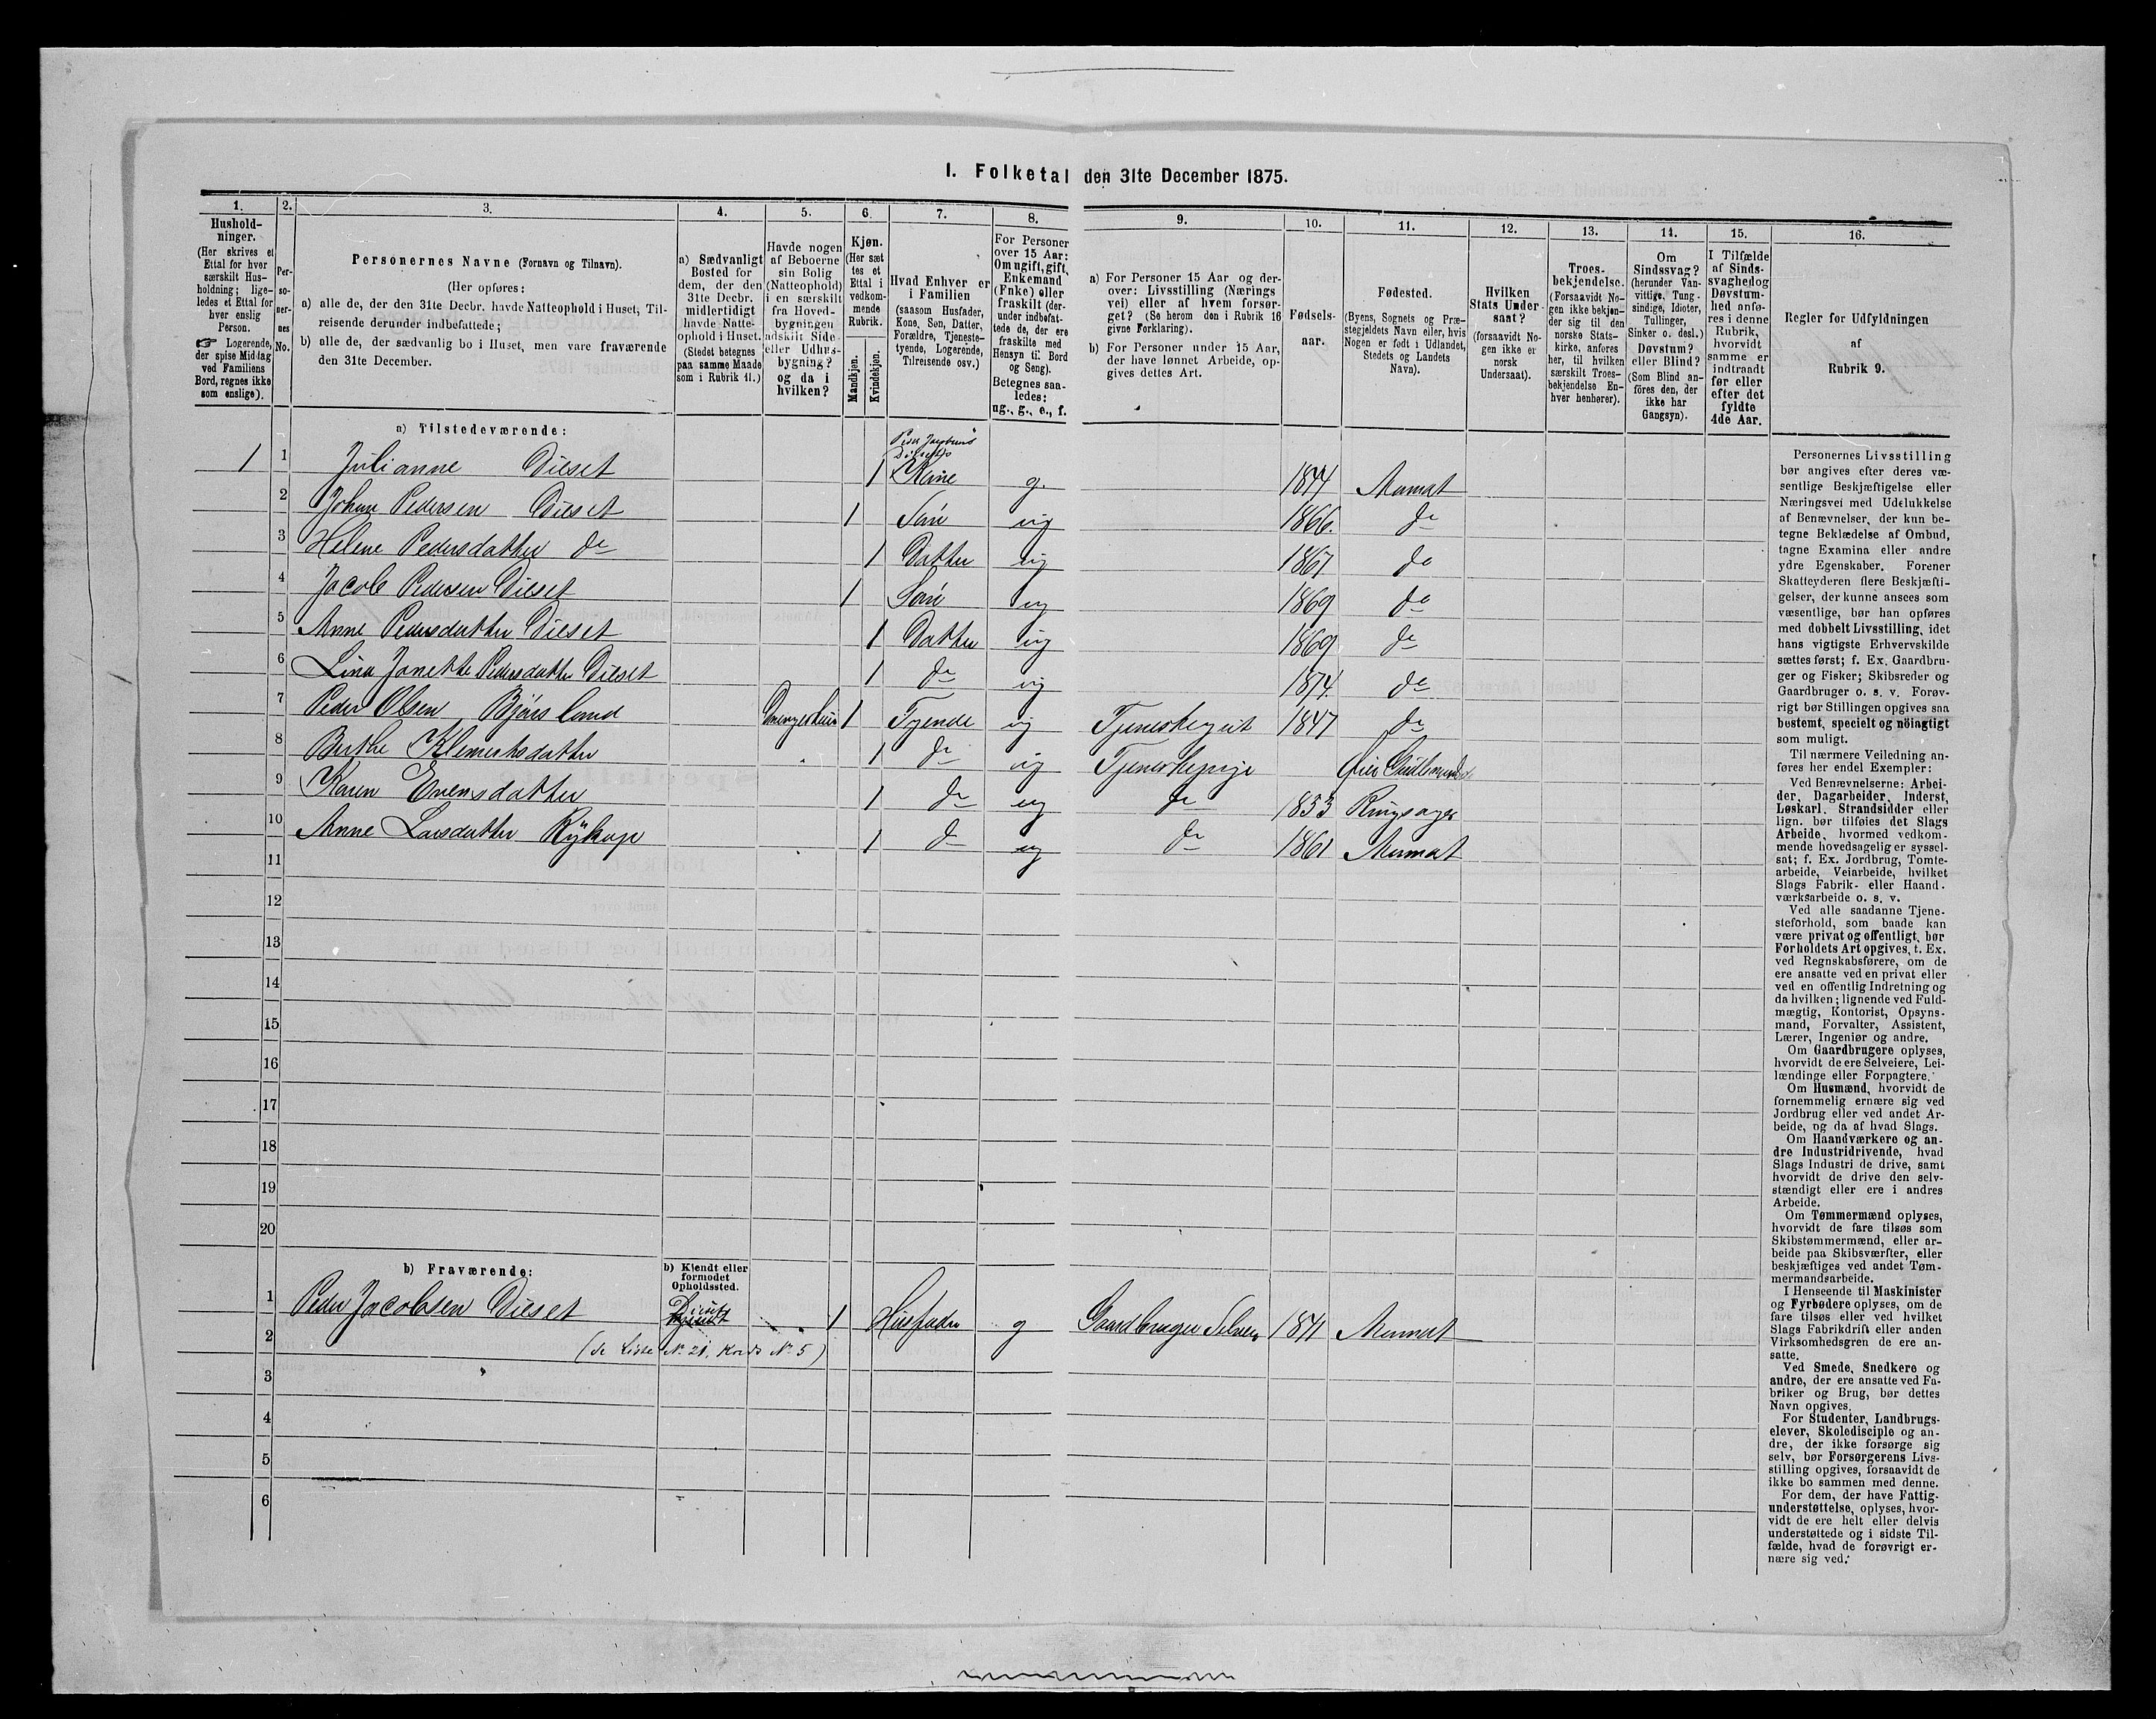 I. Folketal den 31te December 1875.
1. 2. 3. 4. 5. 6. 7. 8. 9. 10. 11. 12. 13. 14. 15. 16.
Hushold-
ninger.
(Her skrives et
Ettal for hver
særskilt Hus-
holdning; lige-
ledes et Ettal for
hver enslig
Person.
☞ Logerende,
der spise Middag
ved Familiens
Bord, regnes ikke
som enslige).
Per-
so-
ner-
nes
No.
Personernes Navne (Fornavn og Tilnavn).
(Her opføres:
a) alle de, der den 31te Decbr. havde Natteophold i Huset, Til-
reisende derunder indbefattede;
b) alle de, der sædvanlig bo i Huset, men vare fraværende
den 31te December.
a) Sædvanligt
Bosted for
dem, der den
31te Decbr.
midlertidigt
havde Natte-
ophold i Huset.
(Stedet betegnes
paa samme Maade
som i Rubrik 11.)
Havde nogen
af Beboerne
sin Bolig
(Natteophold)
i en særskilt
fra Hoved-
bygningen
adskilt Side-
eller Udhus-
bygning?
og da i
hvilken?
Kjøn.
(Her sæt
tes et
Ettal i
vedkom-
mende
Rubrik.
Mandkjøn.
Kvindekjøn.
Hvad Enhver er
i Familien
(saasom Husfader,
Kone, Søn, Datter,
Forældre, Tjeneste-
tyende, Logerende,
Tilreisende osv.)
For Personer
over 15 Aar:
Om ugift, gift,
Enkemand
(Enke) eller
fraskilt (der-
under indbefat-
tede de, der ere
fraskilte med
Hensyn til Bord
og Seng).
Betegnes saa-
ledes:
ug., g., e., f.
a) For Personer 15 Aar og der-
over: Livsstilling (Nærings
vei) eller af hvem forsør-
get? (Se herom den i Rubrik 16
givne Forklaring).
b) For Personer under 15 Aar,
der have lønnet Arbeide, op-
gives dettes Art.
Fødsels-
aar.
Fødested.
(Byens, Sognets og Præ-
stegjeldets Navn eller, hvis
Nogen er født i Udlandet,
Stedets og Landets
Navn).
Hvilken
Stats Under-
saat?
(forsaavidt No-
gen ikke er
norsk
Undersaat).
Troes-
bekjendelse.
(Forsaavidt No-
gen ikke bekjen-
der sig til den
norske Stats-
kirke, anføres
her, til hvilken
særskilt Troes-
bekjendelse En-
hver henhører).
Om
Sindssvag?
(herunder Van-
vittige, Tung-
sindige, Idioter,
Tullinger,
Sinker o. desl.)
Døvstum?
eller Blind?
(Som Blind an-
føres den, der
ikke har
Gangsyn).
I Tilfælde
af Sinds-
svaghed og
Døvstum-
hed anfø-
res i denne
Rubrik,
hvorvidt
samme er
indtraadt
før eller
efter det
fyldte
4de Aar.
Regler for Udfyldningen
af
Rubrik 9.
a) Tilstedeværende:
1 1 Julianne Dieset 1 Kone g. 1844
2 Johan Pedersen Dieset 1 Søn ug 1866. do
3 Helene Pedersdatter do 1 Datter ug 1867 do
4 Jacob Pedersen Dieset 1 Søn ug 1869 do
5 Anne Pedersdatter Dieset 1 Datter ug 1869 do
6 Lina Janette Pedersdatter Dieset 1 do ug 1874. do
7 Peder Olsen 1 Tyende ug Tjenestegut 1847 do
8 Berthe Klemetsdatter 1 do ug Tjenestepige Øier
9 Karen Evensdatter 1 do ug do 1853 Ringsager
10 Anne Larsdatter 1 do ug do 1861
11
12
13
14
15
16
17
18
19
20
b) Fraværende:
b) Kjendt eller
formodet
Opholdssted.
1 Peder Jacobsen Dieset 1 Husfader g Gaardbruger Selveier 1841
2 (se Liste No 21. Kreds No 5)
3
4
5
6
Personernes Livsstilling
bør angives efter deres væ-
sentlige Beskjæftigelse eller
Næringsvei med Udelukkelse
af Benævnelser, der kun be-
tegne Beklædelse af Ombud,
tagne Examina eller andre
ydre Egenskaber. Forener
Skatteyderen flere Beskjæfti-
gelser, der kunne ansees som
væsentlige, bør han opføres
med dobbelt Livsstilling, idet
hans vigtigste Erhvervskilde
sættes først; f. Ex. Gaardbru-
ger og Fisker; Skibsreder og
Gaardbruger o. s. v. Forøv-
rigt bør Stillingen opgives saa
bestemt, specielt og nøiagtigt
som muligt.
Til nærmere Veiledning an-
føres her endel Exempler:
Ved Benævnelserne: Arbei-
der, Dagarbeider, Inderst,
Løskarl, Strandsidder eller
lign. bør tilføies det Slags
Arbeide, hvormed vedkom-
mende hovedsagelig er syssel-
sat; f. Ex. Jordbrug, Tomte-
arbeide, Veiarbeide, hvilket
Slags Fabrik- eller Haand-
værksarbeide o. s. v.
Ved alle saadanne Tjene-
steforhold, som baade kan
være privat og offentligt, bør
Forholdets Art opgives, t. Ex.
ved Regnskabsførere, om de
ere ansatte ved en privat eller
ved en offentlig Indretning og
da hvilken; lignende ved Fuld-
mægtig, Kontorist, Opsyns-
mand, Forvalter, Assistent,
Lærer, Ingeniør og andre.
Om Gaardbrugere oplyses,
hvorvidt de ere Selveiere, Lei-
lændinge eller Forpagtere.
Om Husmænd, hvorvidt de
fornemmelig ernære sig ved
Jordbrug eller ved andet Ar-
beide, og da af hvad Slags.
Om Haandværkere og an-
dre Industridrivende, hvad
Slags Industri de drive, samt
hvorvidt de drive den selv-
stændigt eller ere i andres
Arbeide.
Om Tømmermænd oplyses,
hvorvidt de fare tilsøs som
Skibstømmermænd, eller ar-
beide paa Skibsværfter, eller
beskjæftiges ved andet Tøm-
mermandsarbeide.
I Henseende til Maskinister
og Fyrbødere oplyses, om de
fare tilsøs eller ved hvilket
Slags Fabrikdrift eller anden
Virksomhedsgren de ere an-
satte.
Ved Smede, Snedkere og
andre, der ere ansatte ved Fa-
briker og Brug, bør dettes
Navn opgives.
For Studenter, Landbrugs-
elever, Skoledisciple og an-
dre, der ikke forsørge sig
selv, bør Forsørgerens Livs-
stilling opgives, forsaavidt de
ikke bo sammen med denne.
For dem, der have Fattig-
understøttelse, oplyses, hvor-
vidt de ere helt eller delvis
understøttede og i sidste Til-
fælde, hvad de forøvrigt er-
nære sig ved.